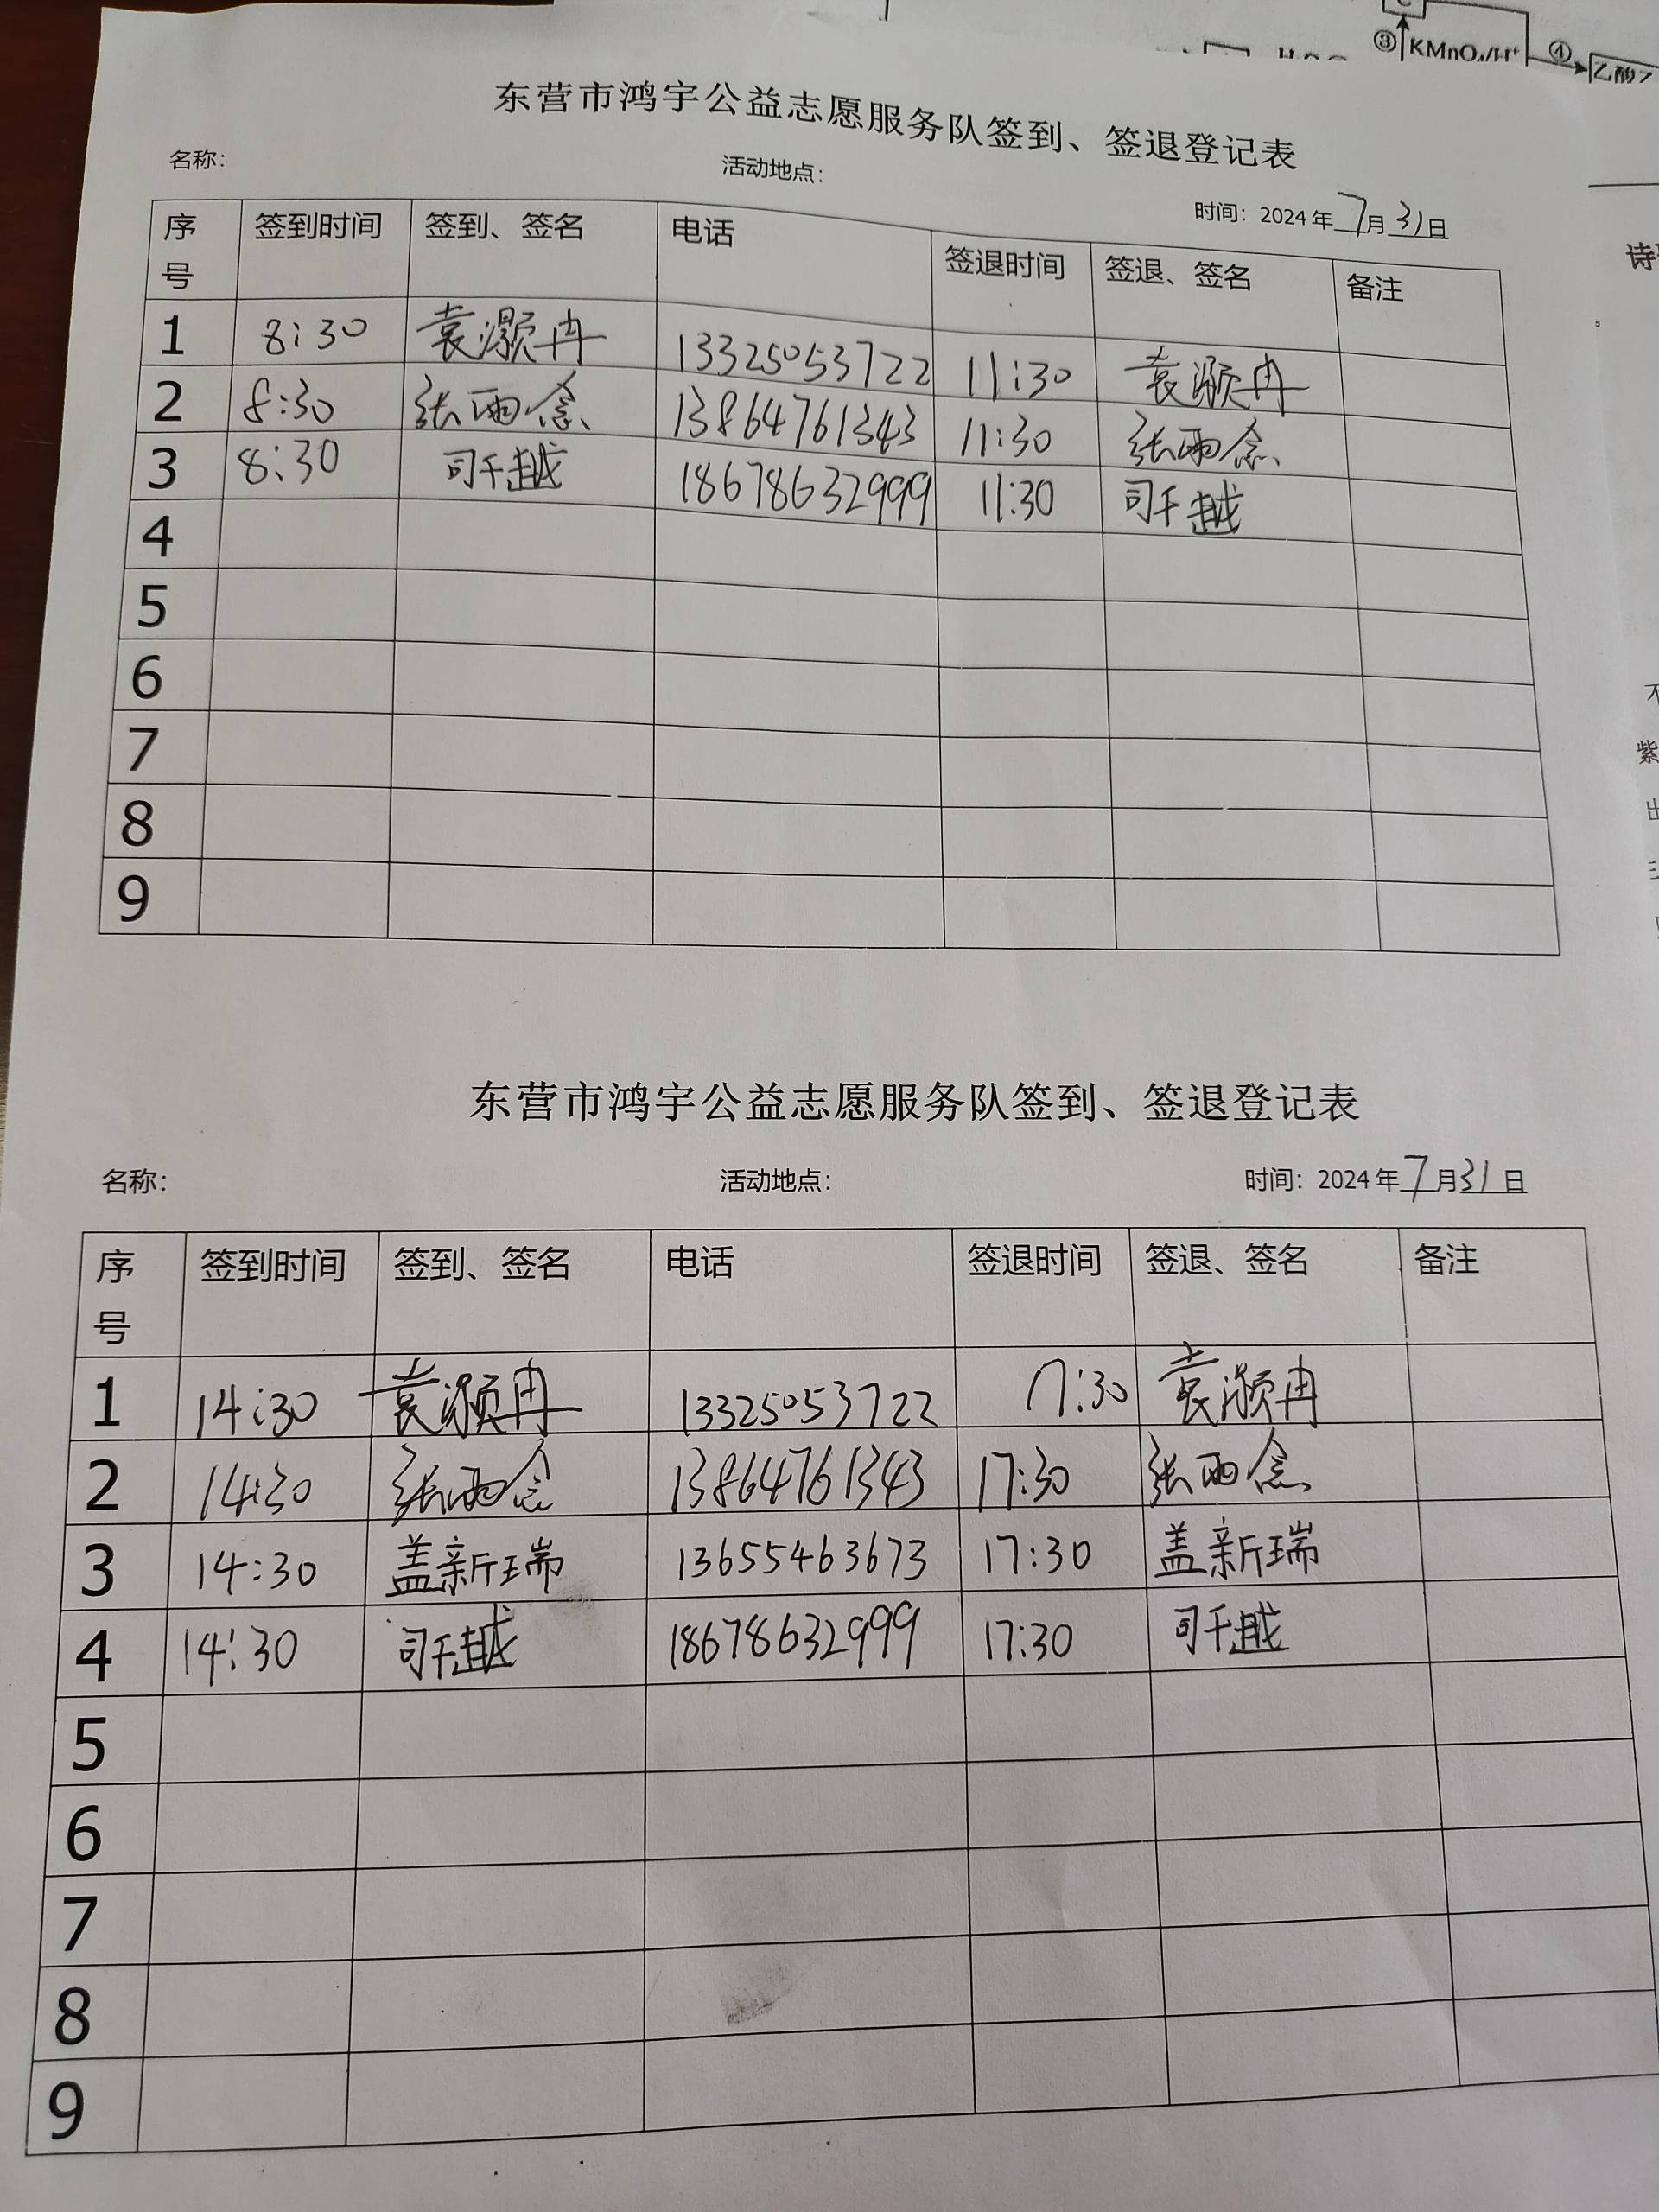 ③ KMnO₄/H⁺ ④
东营市鸿宇公益志愿服务队签到、签退登记表
名称： 活动地点：
时间：2024年7月31日
序号 签到时间 签到、签名 电话 签退时间 签退、签名 备注
1 8:30 袁灏冉 13325053722 11:30 袁灏冉
2 8:30 张雨念 13864761343 11:30 张雨念
3 8:30 司千越 18678632999 11:30 司千越
4
5
6
7
8
9
东营市鸿宇公益志愿服务队签到、签退登记表
名称： 活动地点： 时间：2024年7月31日
序号 签到时间 签到、签名 电话 签退时间 签退、签名 备注
1 14:30 袁灏冉 13325053722 17:30 袁灏冉
2 14:30 张雨念 13864761343 17:30 张雨念
3 14:30 盖新瑞 13655463673 17:30 盖新瑞
4 14:30 司千越 18678632999 17:30 司千越
5
6
7
8
9